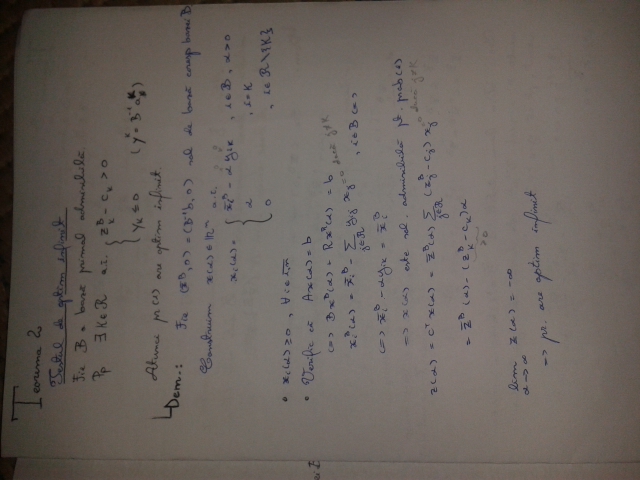 Teorema 2.
Testul de optim infinit
Fie B o bază primal admisibilă.
Pp ∃ k∈ℛ a.î. { z̄ᴮₖ - cₖ > 0
yₖ ≤ 0 (yᵏ = B⁻¹aₖ)
Atunci pr(1) are optim infinit.
Dem.: Fie (x̄ᴮ, 0) = (B⁻¹b, 0) sol de bază coresp bazei B.
Construim x(α) ∈ ℝⁿ a.î.
xᵢ(α) = { x̄ᵢᴮ - αyᵢₖ , i∈ℬ, α>0
α , i=k
0 , i∈ℛ\{k}
• xᵢ(α) ≥ 0, ∀ i∈1,n
• Verific că Ax(α) = b
(=) Bxᴮ(α) + Rxᴿ(α) = b
xᵢᴮ(α) = x̄ᵢᴮ - Σ j∈ℛ yᵢⱼ xⱼ , i∈ℬ (=)
=0 dacă j≠k
(=) x̄ᵢᴮ - αyᵢₖ = x̄ᵢᴮ
=) x(α) este sol. admisibilă pt. prob (1)
z(α) = cᵀx(α) = z̄ᴮ(α) Σ j∈ℛ (zⱼᴮ - cⱼ) xⱼ
=0 dacă j≠k
= z̄ᴮ(α) - (zₖᴮ - cₖ)α
>0
lim α→∞ z(α) = -∞
→ pr. are optim infinit